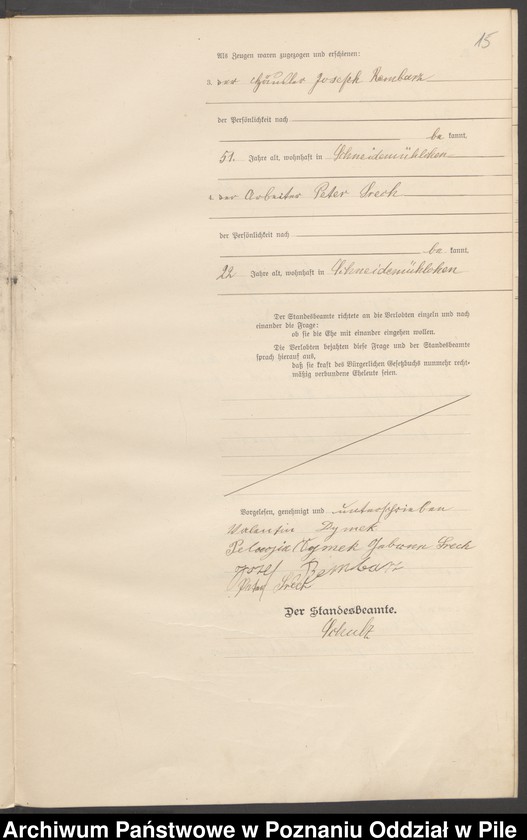 15
Als Zeugen waren zugezogen und erschienen:
3. der Häusler Joseph Rembarz
der Persönlichkeit nach
be kannt,
51 Jahre alt, wohnhaft in Schneidemühlchen
4. der Arbeiter Peter Srech
der Persönlichkeit nach
be kannt,
22 Jahre alt, wohnhaft in Schneidemühlchen
Der Standesbeamte richtete an die Verlobten einzeln und nach
einander die Frage:
ob sie die Ehe mit einander eingehen wollen.
Die Verlobten bejahten diese Frage und der Standesbeamte
sprach hierauf aus,
daß sie kraft des Bürgerlichen Gesetzbuchs nunmehr recht-
mäßig verbundene Eheleute seien.
Vorgelesen, genehmigt und unterschrieben
Valentin Dymek
Dymek Srech
Josef Rembarz
Peter Srech
Der Standesbeamte.
Schulz
Archiwum Państwowe w Poznaniu Oddział w Pile